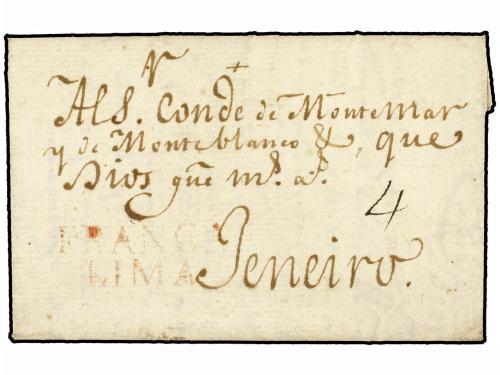 Al Sr. Conde de Montemar
y de Monteblanco &, que
Dios gue ms. as.
4
FRANCA
LIMA
Jeneiro.